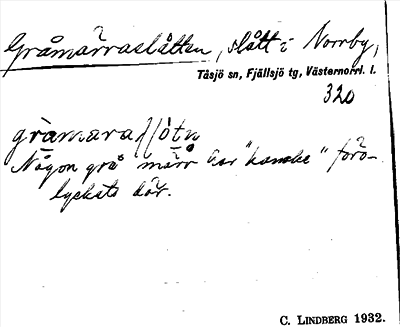 Gråmärraslåtten, slått i Norrby,
Tåsjö sn, Fjällsjö tg, Västernorrl. l.
320
Någon grå märr har "kanske" föro-
lyckats där.
C. LINDBERG 1932.